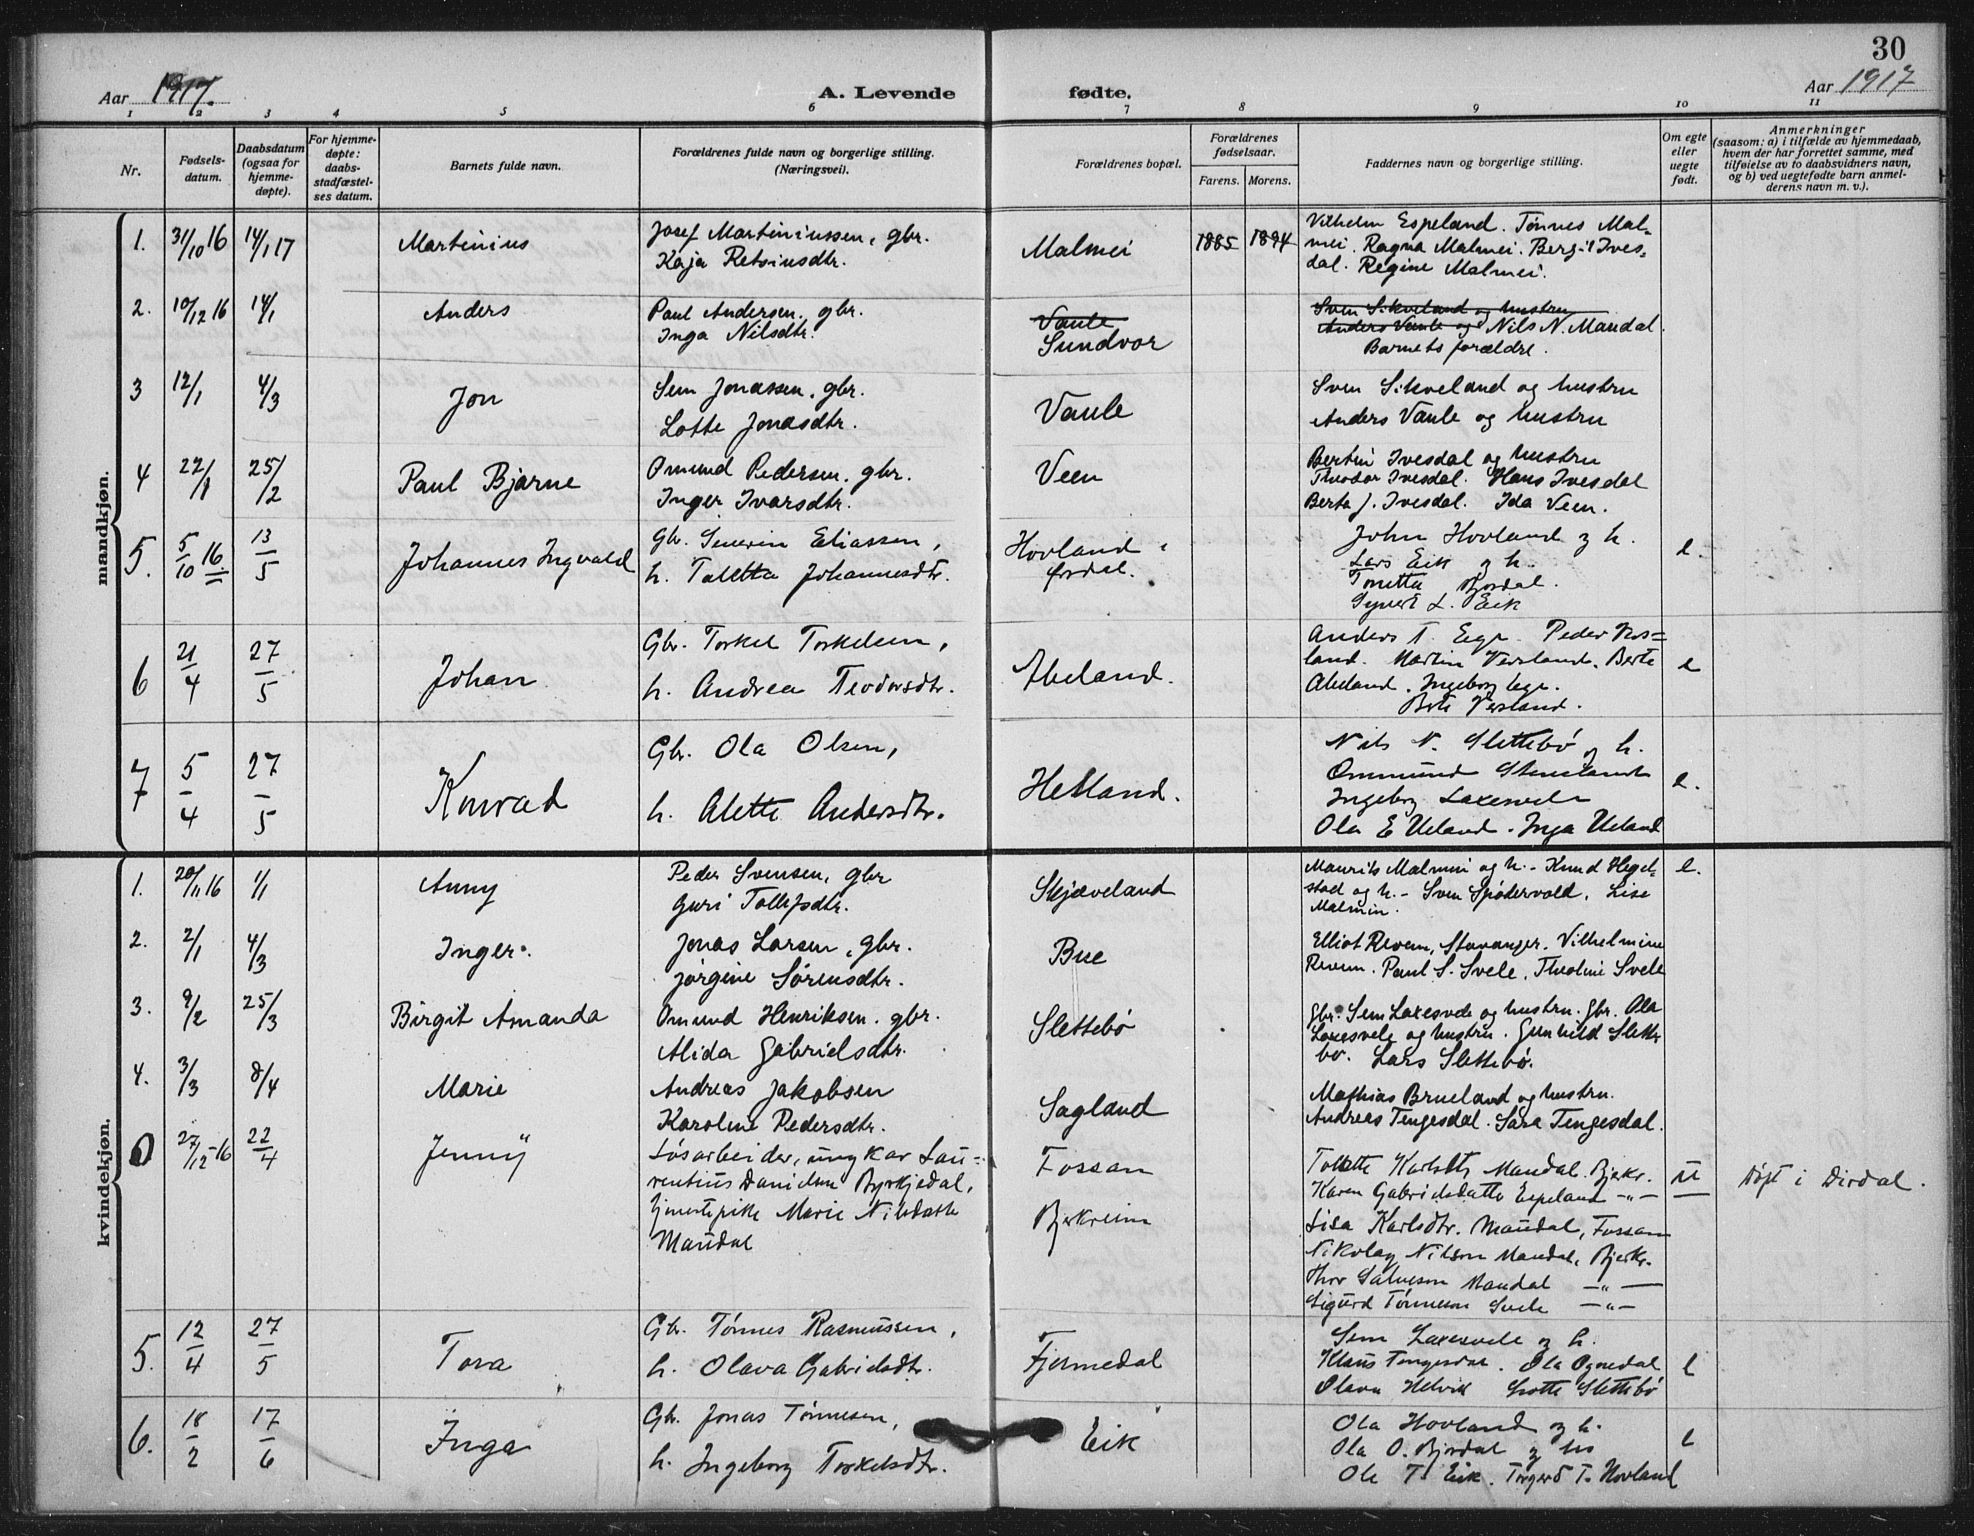 30
Aar 1917.
A. Levende fødte.
Aar 1917
1 2 3 4 5 6 7 8 9 10 11
Nr.
Fødsels-
datum.
Daabsdatum
(ogsaa for
hjemme-
døpte).
For hjemme-
døpte:
daabs-
stadfæstel-
ses datum.
Barnets fulde navn.
Forældrenes fulde navn og borgerlige stilling.
(Næringsvei).
Forældrenes bopæl.
Forældrenes
fødselsaar.
Farens. Morens.
Faddernes navn og borgerlige stilling.
Om egte
eller
uegte
født.
Anmerkninger
(saasom: a) i tilfælde av hjemmedaab,
hvem der har forrettet samme, med
tilføielse av to daabsvidners navn,
og b) ved uegtefødte barn anmel-
derens navn m. v.).
mandkjøn.
1. 31/10 16 14/1 17 Martinius
Josef Martiniussen, gbr.
Kaja Retsiusdtr.
Malmei 1885 1894
Vilhelm Espeland. Tønnes Mal-
mei. Ragna Malmei. Bergit Ives-
dal. Regine Malmei.
2. 10/12 16 14/1 Anders
Paul Andersen, gbr.
Inga Nilsdtr.
Vaule
Sundvor
Sven Sikveland og hustru
Anders Vaule og Nils N. Maudal.
Barnets forældre.
3 12/1 4/3 Jon
Sem Jonassen, gbr.
Lotte Jonasdtr.
Vaule
Sven Sikveland og hustru
Anders Vaule og hustru
4 22/1 25/2 Paul Bjarne
Omund Pedersen, gbr.
Inger Ivarsdtr.
Veen
Bertin Ivesdal og hustru
Theodor Ivesdal. Hans Ivesdal
Berta J. Ivesdal. Ida Veen.
5. 5/10 16 13/5 Johannes Ingvald
Gbr. Severin Eliassen,
h. Taletta Johannesdtr.
Hovland
Ørsdal.
John Hovland og h.
Lars Eik og h.
Tonetta Bjordal.
Syvert L. Eik
e.
6 21/4 27/5 Johan
Gbr. Torkel Torkelsen,
h. Andrea Teodorsdtr.
Aveland.
Anders T. Ege. Peder
land. Martin Versland. Berte
Aveland. Ingeborg Ege.
Berte Versland.
e
7 5/4 27/5 Konrad
Gbr. Ola Olsen,
h. Alette Andersdtr.
Hetland.
Nils N. Slettebø og h.
Ommund
Ingeborg Laxesvele
Ola E Ueland. Inga Ueland
e.
kvindekjøn.
1. 20/11 16 1/1 Anny
Peder Svensen, gbr
Guri Tollefsdtr.
Skjæveland
Maurits Malmin og h. - Knud Hegel-
stad og h. - Sven Spødervold. Lise
Malmin.
e.
2. 2/1 4/3 Inger.
Jonas Larsen, gbr.
Jørgine Sørensdtr.
Bue
Elliot Reven, Stavanger. Vilhelmine
Reven. Paul S. Svele. Theoline Svele
3. 9/2 25/3 Birgit Amanda
Omund Henriksen. gbr.
Alida Gabrielsdtr.
Slettebø
Gbr. Sem Laxesvele og hustru. Gbr. Ola
Laxesvele og hustru. Gunhild Slette
bø. Lars Slettebø.
4. 3/3 8/4 Marie
Andreas Jakobsen
Karoline Pedersdtr.
Sagland
Mathias Brueland og hustru.
Andreas Tengesdal. Sara Tengesdal.
0 27/12-16 22/4 Jenny
Løsarbeider, ungkar Lau-
rentius Danielsen Byrkjedal,
tjenestepike Marie Nilsdatter
Maudal
Fossan
Bjerkreim
Tolette Karlsdtr Maudal. Bjekr.
Karen Gabrielsdatter Espeland -"-
Lisa Karlsdtr. Maudal, Fossan
Nikolay Nilson Maudal, Bjerkr.
Thor Salveson Maudal -"-
Sigurd Tønneson Svele -"-
U
Døpt i Dirdal.
5. 12/4 27/5 Tora
Gbr. Tønnes Rasmussen,
h. Olava Gabrielsdtr.
Fjermedal
Sem Laxesvele og h.
Klaus Tengesdal. Ola Ognedal
Olava Helvik Lotte Slettebø
e
6. 18/2 17/6 Inga
Gbr. Jonas Tønnesen,
h. Ingeborg Torkelsdtr.
Eik
Ola Hovland og h.
Ola O. Bjordal og h
Ole T. Eik. Torgerd T. Hovland
e